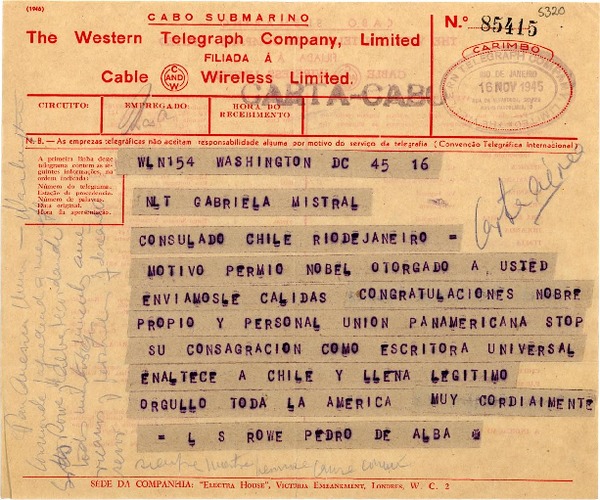 (1946)
5320
CABO SUBMARINO
The Western Telegraph Company, Limited
FILIADA Á
Cable C AND W Wireless Limited.
N.º 85415
CARIMBO
WESTERN TELEGRAPH COMPANY
RIO DE JANEIRO
16 NOV 1945
CARTA-CABO
CIRCUITO:
EMPREGADO:
HORA DO RECEBIMENTO
N. B. — As emprezas telegráficas não aceitam responsabilidade alguma por motivo do serviço da telegrafia (Convenção Telegráfica Internacional)
A primeira linha deste telegrama contem as seguintes informações, na ordem indicada:
Número do telegrama.
Estação de procedencia.
Número de palavras.
Data original.
Hora da apresentação.
WLN154 WASHINGTON DC 45 16
NLT GABRIELA MISTRAL
CONSULADO CHILE RIODEJANEIRO =
MOTIVO PERMIO NOBEL OTORGADO A USTED
ENVIAMOSLE CALIDAS CONGRATULACIONES NOBRE
PROPIO Y PERSONAL UNION PANAMERICANA STOP
SU CONSAGRACION COMO ESCRITORA UNIVERSAL
ENALTECE A CHILE Y LLENA LEGITIMO
ORGULLO TODA LA AMERICA MUY CORDIAIMENTE
= L S ROWE PEDRO DE ALBA
SEDE DA COMPANHIA: "ELECTRA HOUSE", VICTORIA EMBANKMENT, LONDRES, W. C. 2